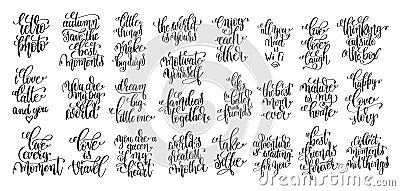 retro
photo
autumn
save the
best
moments
little
things
make
big days
the world
is yours
motivate
yourself
enjoy
each
other
all you
need
is
wi fi
live
love
laugh
thinking
outside
the box
i love
latte
and you
you are
my big
little
world
dream
big
little
one
families
together
best
friends
the best
mom
ever
nature
is my
home
happy
love
story
live
every
moment
love is
travel
you are a
queen
of my
heart
world's
greatest
mother
take a
selfie
adventure
is
waiting
for you
best
friends
forever
collect
moments
not things